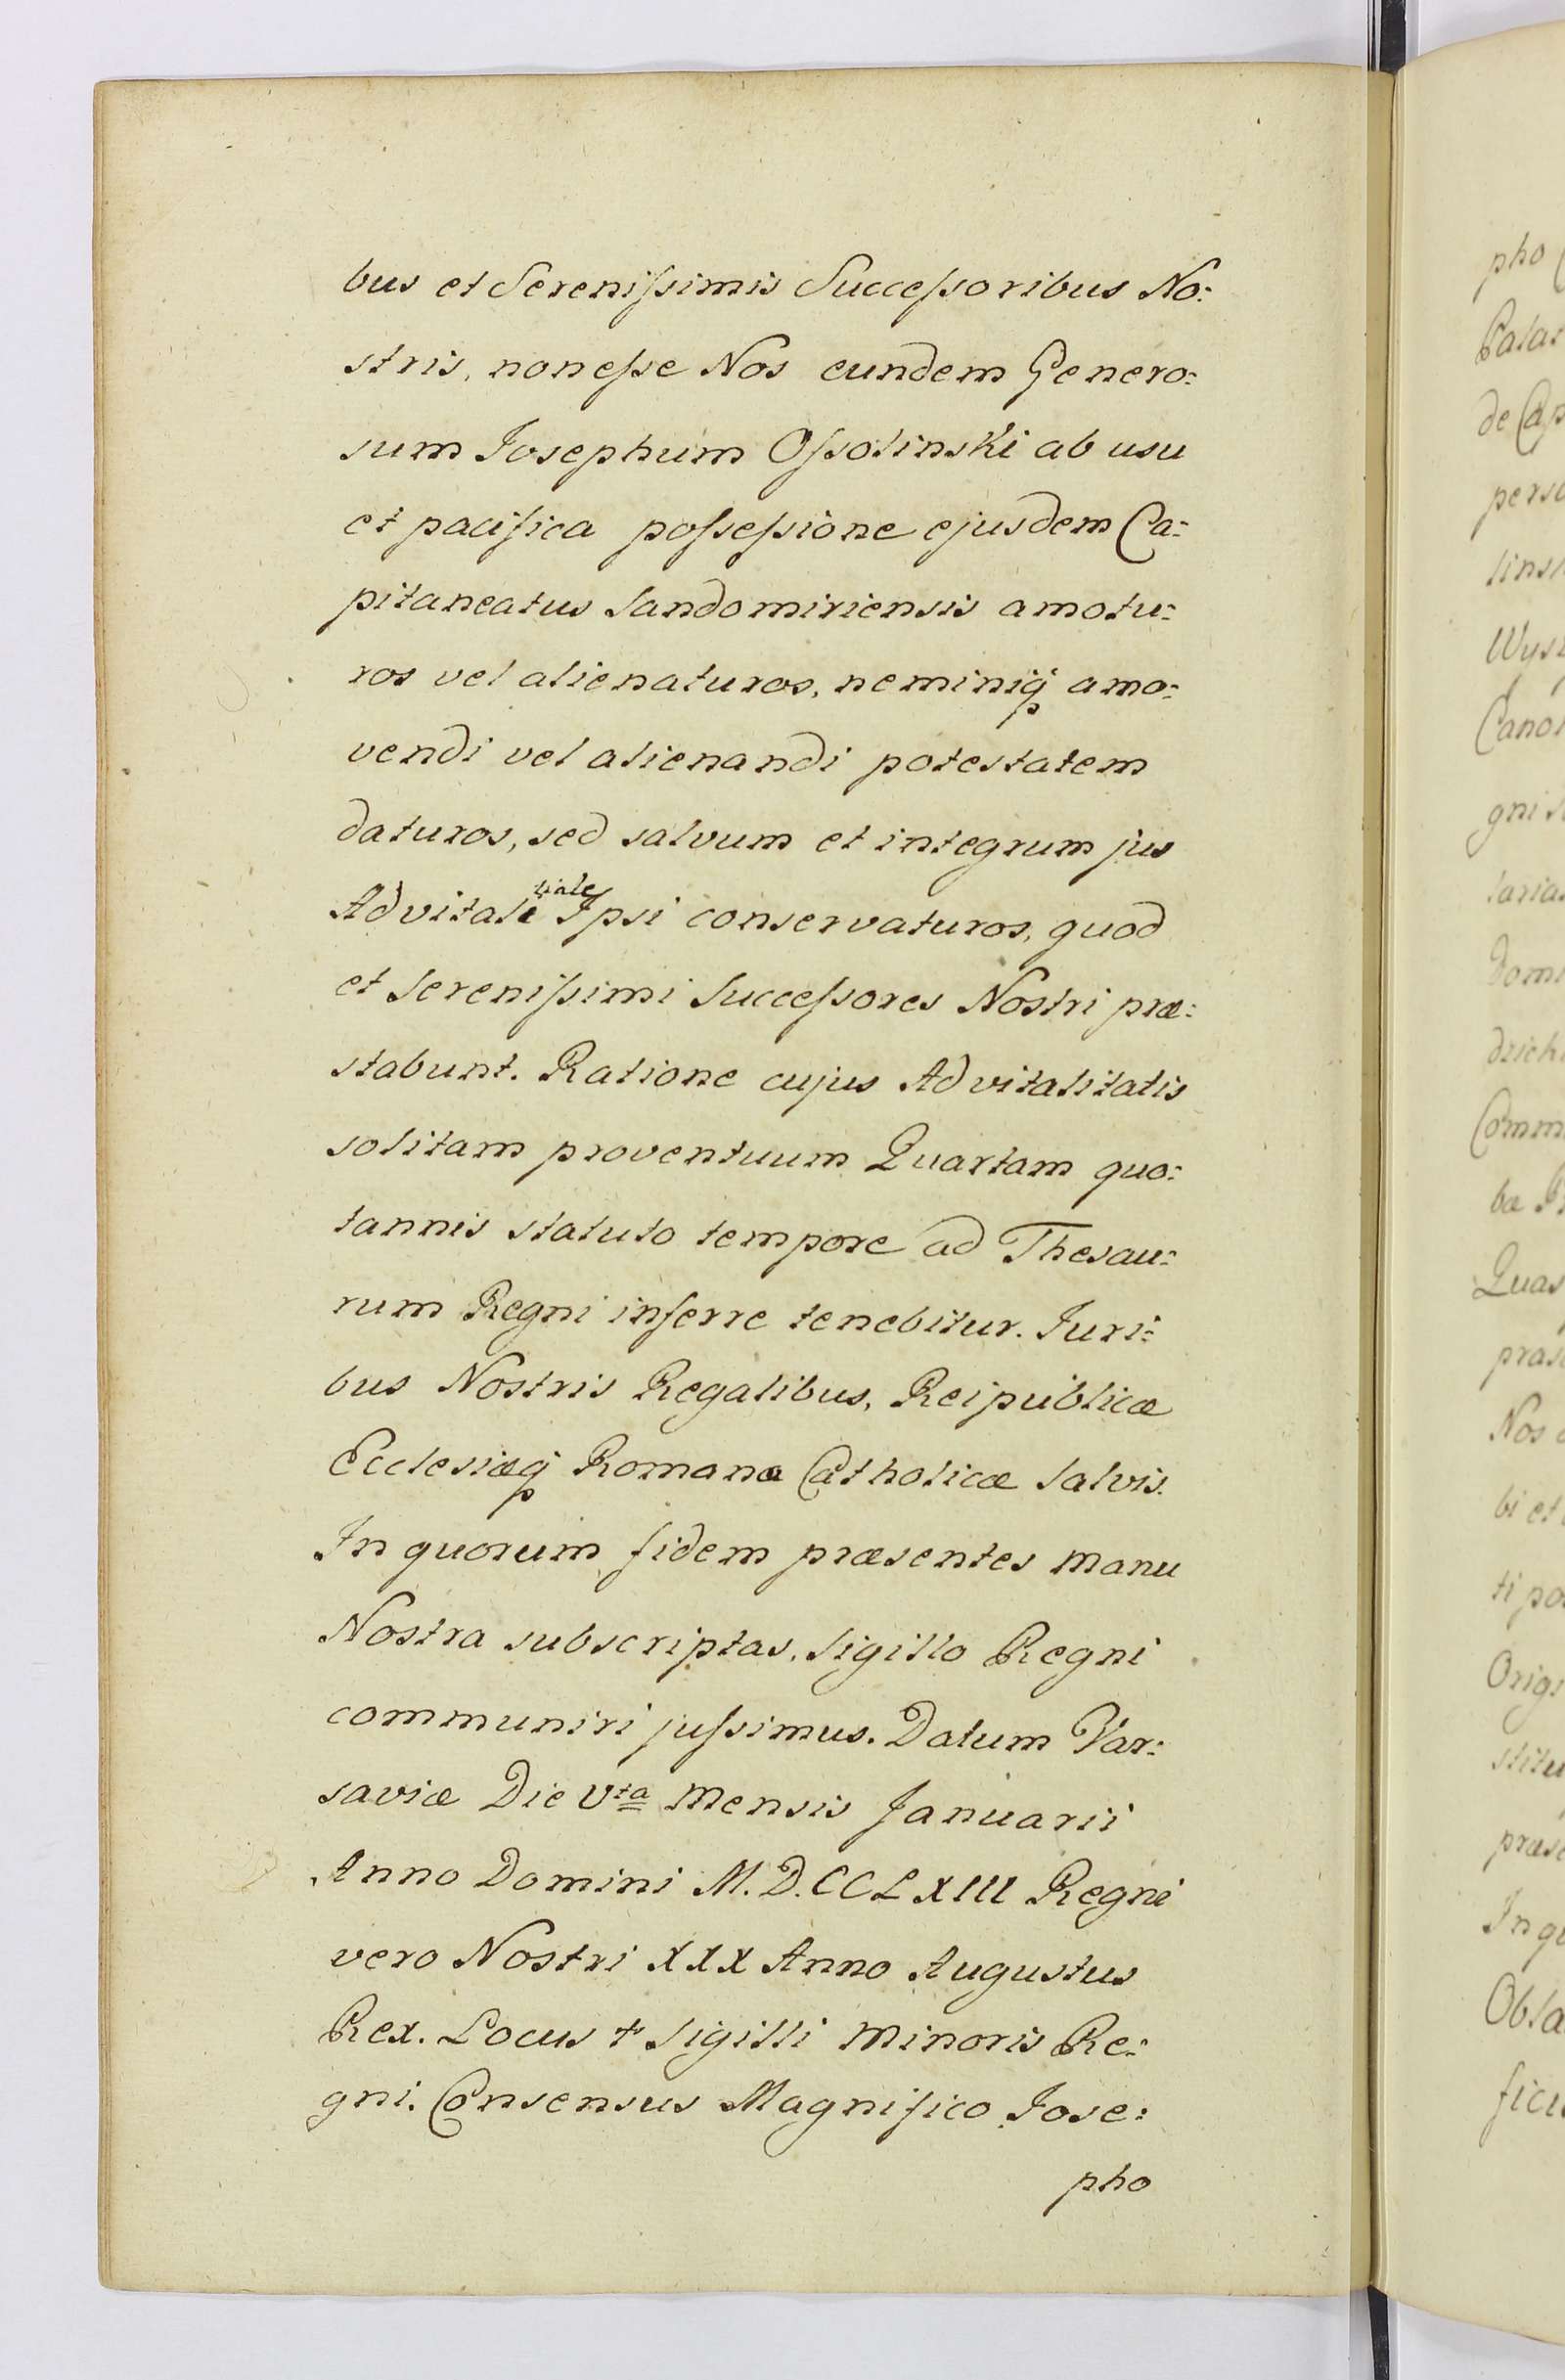 bus et Sereniſsimis Succeſsoribus No:
stris, non eſse Nos eundem Genero:
sum Josephum Oſsolinski ab usu
et pacifica poſseſsione ejusdem Ca:
pitaneatus Sandomiriensis amotu:
ros vel alienaturos, neminiq́ amo:
vendi vel alienandi potestatem
daturos, sed salvum et integrum jus
tiale
Advitali Ipsi conservaturos, quod
et Sereniſsimi Succeſsores Nostri præ:
stabunt. Ratione cujus Advitalitatis
solitam proventuum Quartam quo:
tannis statuto tempore ad Thesau:
rum Regni inferre tenebitur. Juri:
bus Nostris Regalibus, Reipublicæ
Ecclesiæq́ Romanæ Catholicæ Salvis.
In quorum fidem præsentes manu
Nostra subscriptas, Sigillo Regni
communiri juſsimus. Datum Var:
saviæ Die Vta Mensis Januarii
Anno Domini M.D.CCLXIII Regni
vero Nostri XXX Anno Augustus
Rex. Locus + Sigilli Minoris Re:
gni. Consensus Magnifico Jose:
pho
pho
Palat
de Cap
perso
linsk
Canon
laria
Domi
drich
Comm
bæ
Quas
Nos
bi et
ti po
Origi
stitu
præse
In qu
Obla
ficu